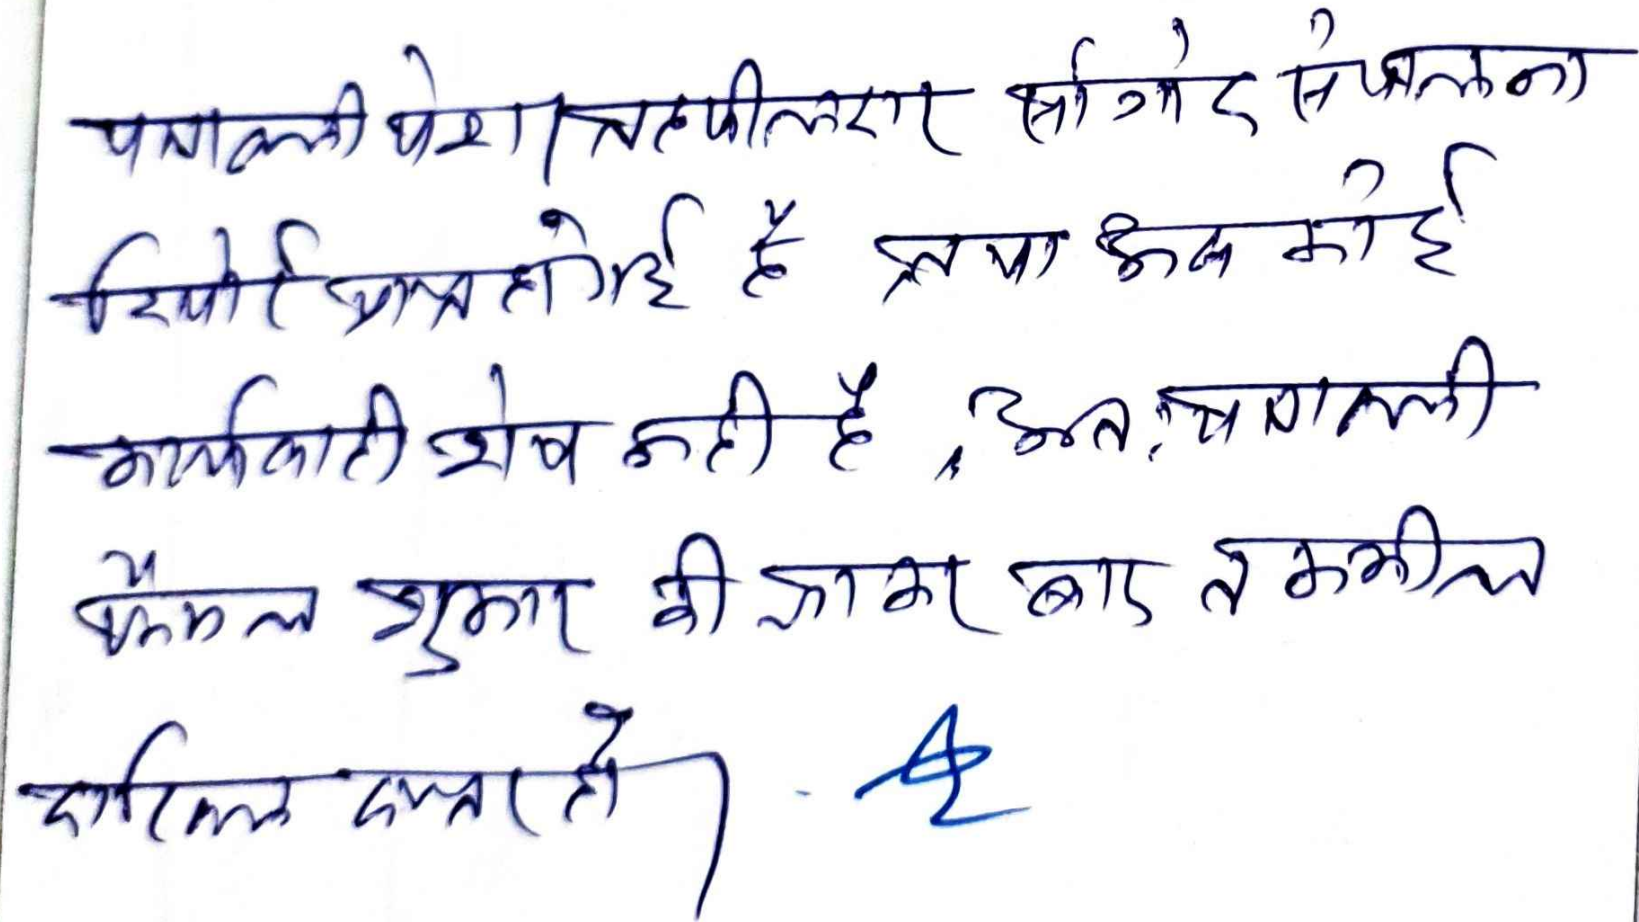 पत्रावली पेश। तहसीलदार सांगोद से पालना
रिपोर्ट प्राप्त हो गई है तथा अब कोई
कार्यवाही शेष नहीं है, अतः पत्रावली
फैसल शुमार की जाकर बाद तकमील
दाखिल दफ्तर हो।